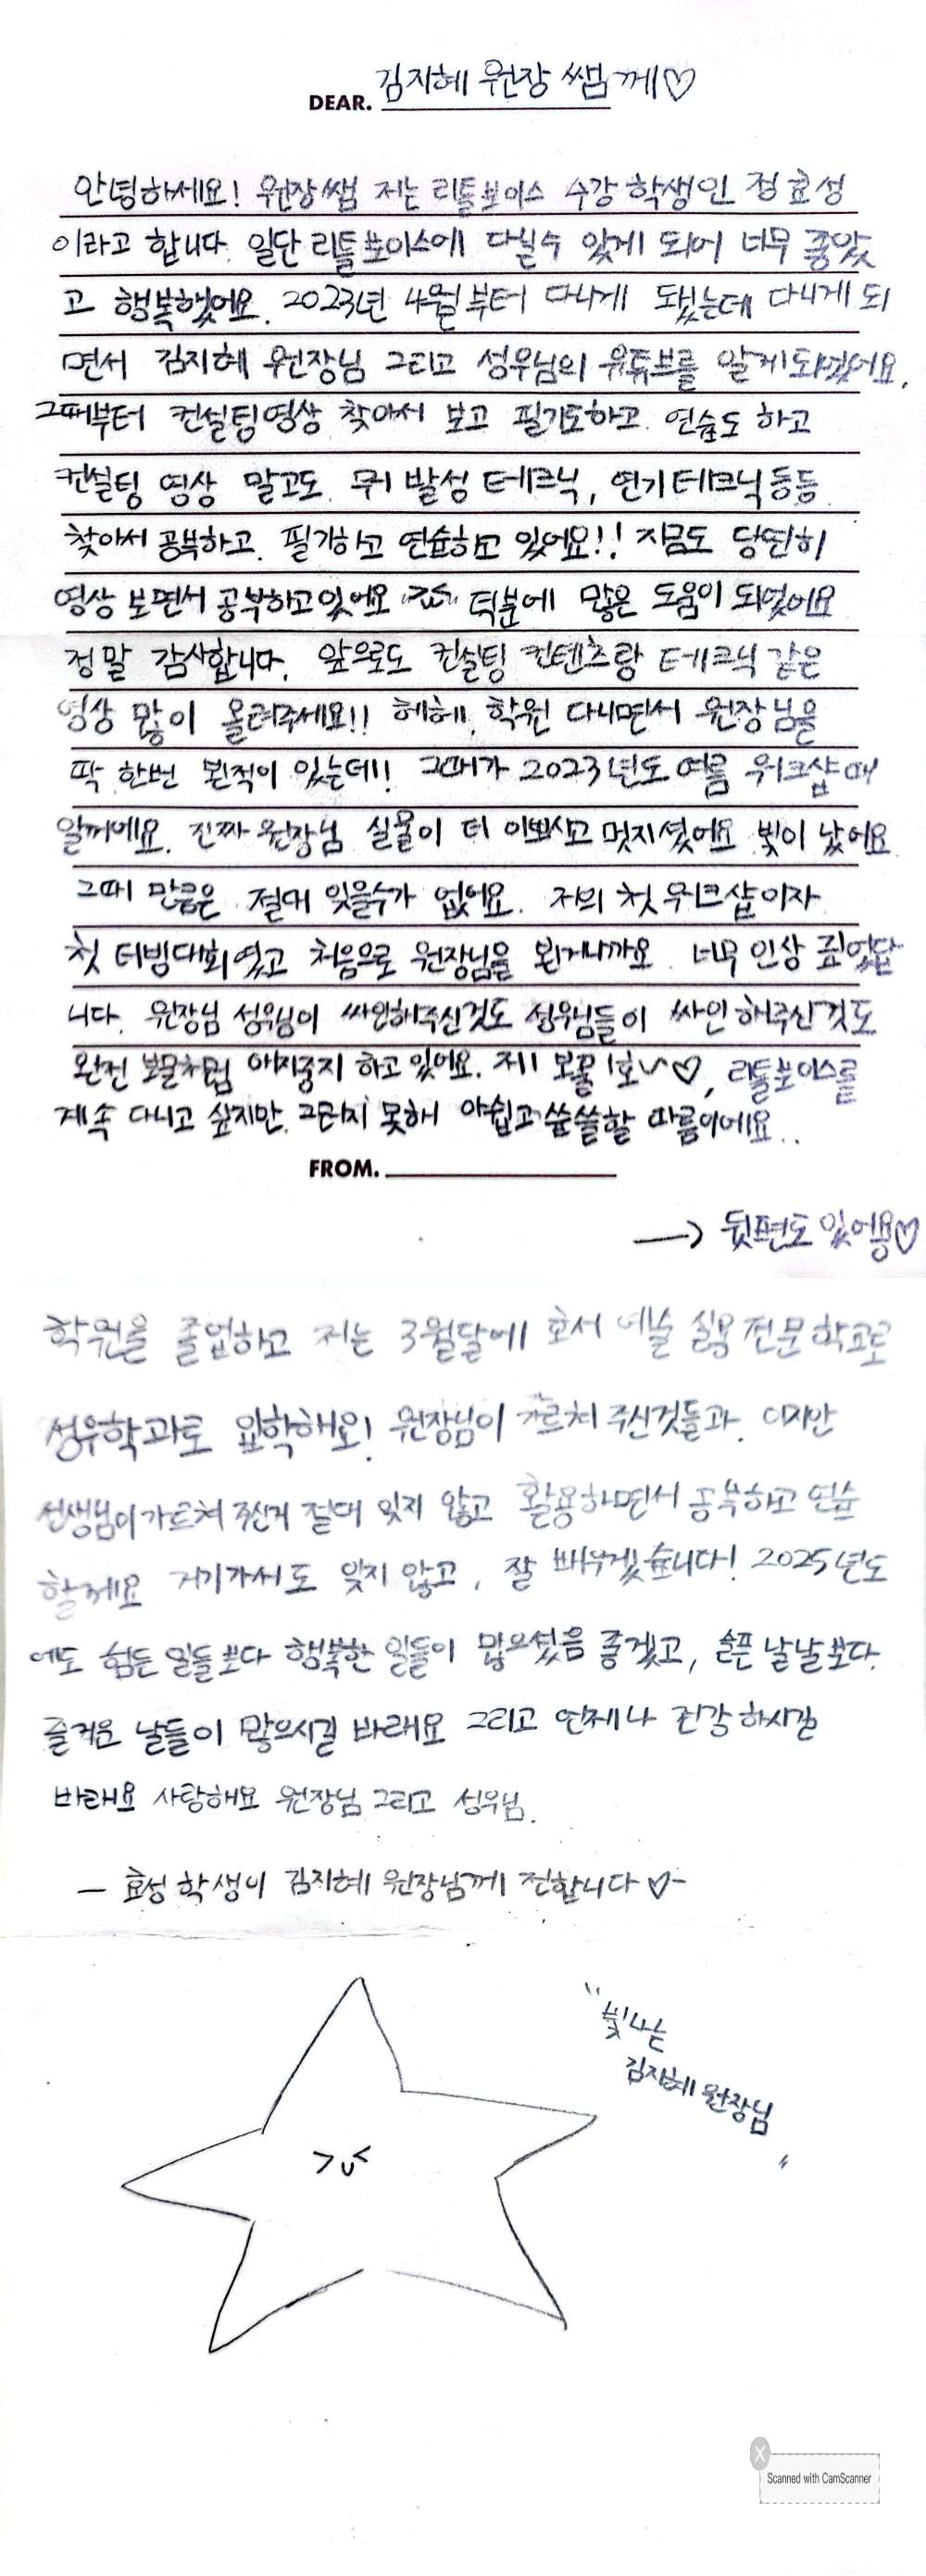 DEAR. 김지혜 원장 쌤께♡
안녕하세요! 원장쌤 저는 리틀보이스 수강 학생인 정효성
이라고 합니다. 일단 리틀보이스에 다닐수 있게 되어 너무 좋았
고 행복했어요. 2023년 4월부터 다니게 됐는데 다니게 되
면서 김지혜 원장님 그리고 성우님의 유튜브를 알게되었어요.
그때부터 컨설팅영상 찾아서 보고 필기도하고 연습도 하고
컨설팅 영상 말고도 뭐 발성 테크닉, 연기테크닉 등등
찾아서 공부하고. 필기하고 연습하고 있어요!! 지금도 당연히
영상 보면서 공부하고있어요 덕분에 많은 도움이 되었어요
정말 감사합니다. 앞으로도 컨설팅 컨텐츠랑 테크닉 같은
영상 많이 올려주세요!! 헤헤, 학원 다니면서 원장님을
딱 한번 뵌적이 있는데!! 그때가 2023년도 여름 워크샵때
일꺼에요. 진짜 원장님 실물이 더 이쁘시고 멋지셨어요 빛이 났어요
그때 만큼은 절대 잊을수가 없어요. 저의 첫 워크샵이자
첫 더빙대회였고 처음으로 원장님을 뵌거니까요 너무 인상 깊었답
니다. 원장님 성우님이 싸인해주신것도 성우님들이 싸인 해주신것도
완전 보물처럼 애지중지 하고 있어요. 제1 보물 1호~♡, 리틀보이스를
계속 다니고 싶지만. 그러지 못해 아쉽고 씁쓸할 따름이에요..
FROM.
→ 뒷편도 있어용♡
학원을 졸업하고 저는 3월달에 호서 예술 실용 전문 학교로
성우학과로 입학해요! 원장님이 가르쳐 주신것들과. 이지안
선생님이 가르쳐 주신거 절대 잊지 않고 활용하면서 공부하고 연습
할께요 거기가서도 잊지 않고, 잘 배우겠습니다! 2025년도
에도 힘든 일들보다 행복한 일들이 많으셨음 좋겠고, 슬픈 날날보다.
즐거운 날들이 많으시길 바래요 그리고 언제나 건강하시길
바래요 사랑해요 원장님 그리고 성우님.
- 효성 학생이 김지혜 원장님께 전합니다 ♡-
"빛나는
김지혜 원장님
"
Scanned with CamScanner